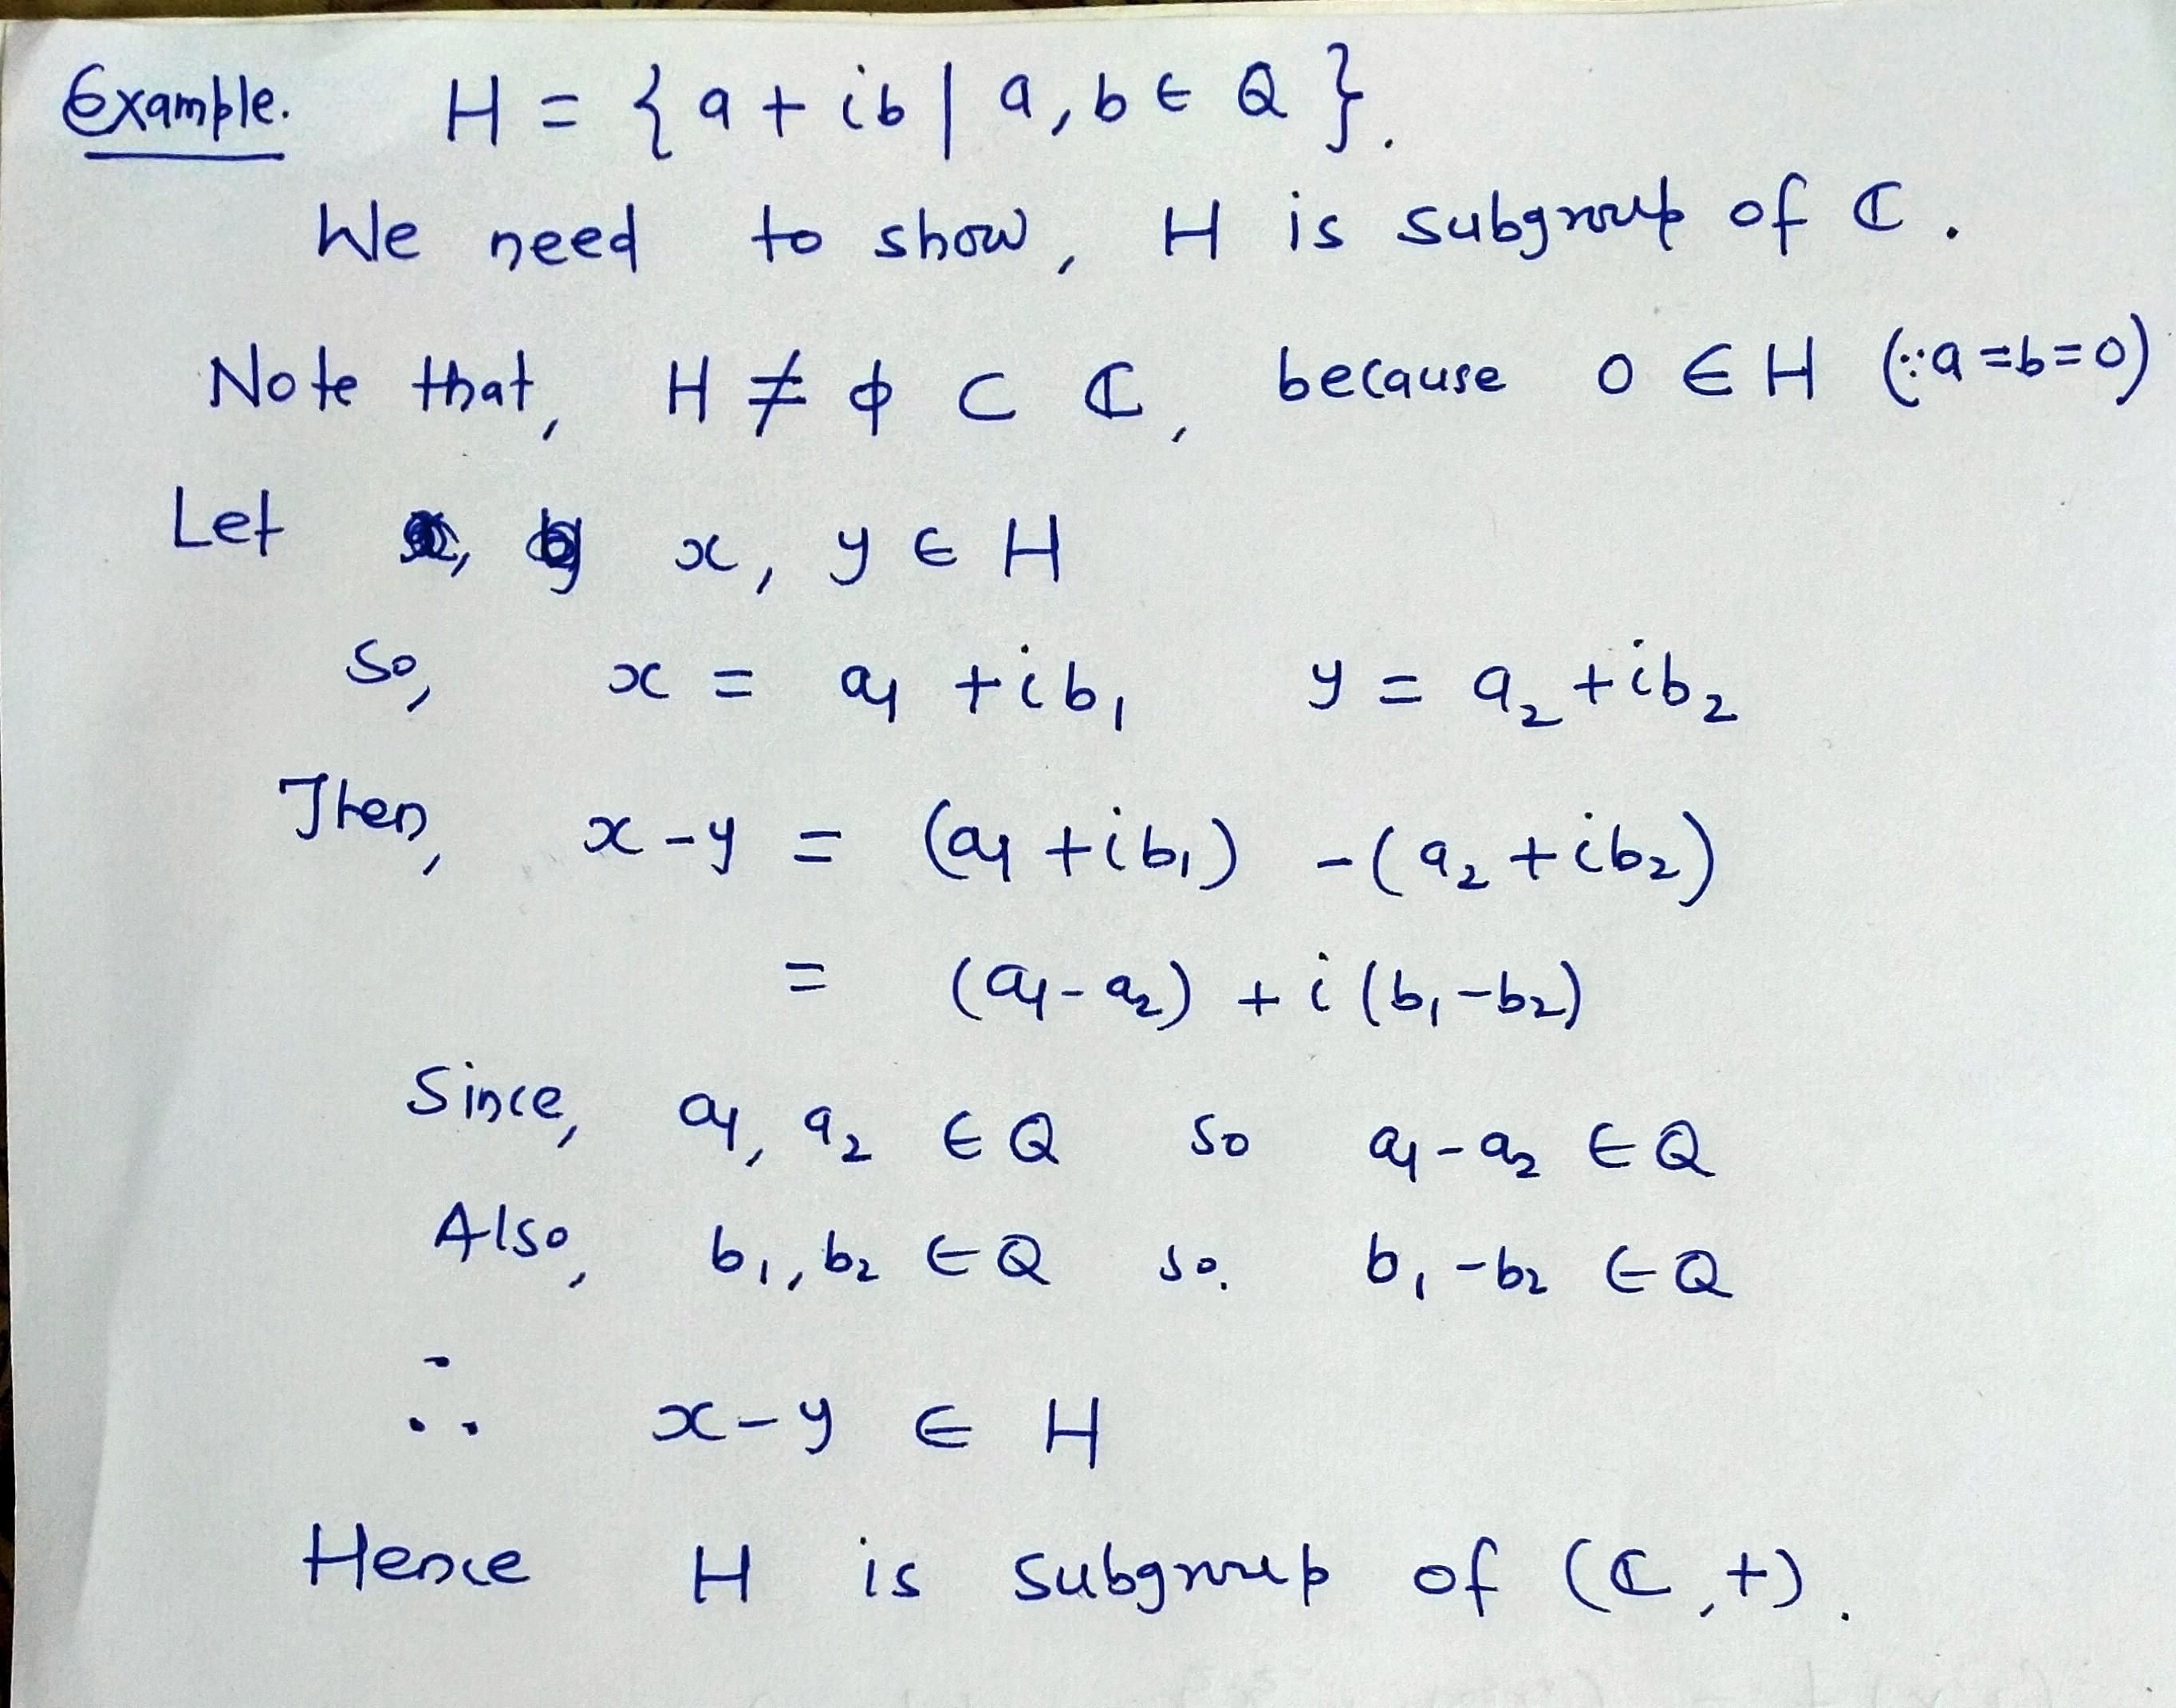 Example. H = { a + ib | a, b ∈ Q }.
We need to show, H is subgroup of ℂ.
Note that, H ≠ ϕ ⊂ ℂ, because 0 ∈ H (∵ a = b = 0)
Let x, y ∈ H
So, x = a₁ + ib₁ y = a₂ + ib₂
Then, x - y = (a₁ + ib₁) - (a₂ + ib₂)
= (a₁ - a₂) + i (b₁ - b₂)
Since, a₁, a₂ ∈ Q so a₁ - a₂ ∈ Q
Also, b₁, b₂ ∈ Q so. b₁ - b₂ ∈ Q
∴ x - y ∈ H
Hence H is subgroup of (ℂ, +).